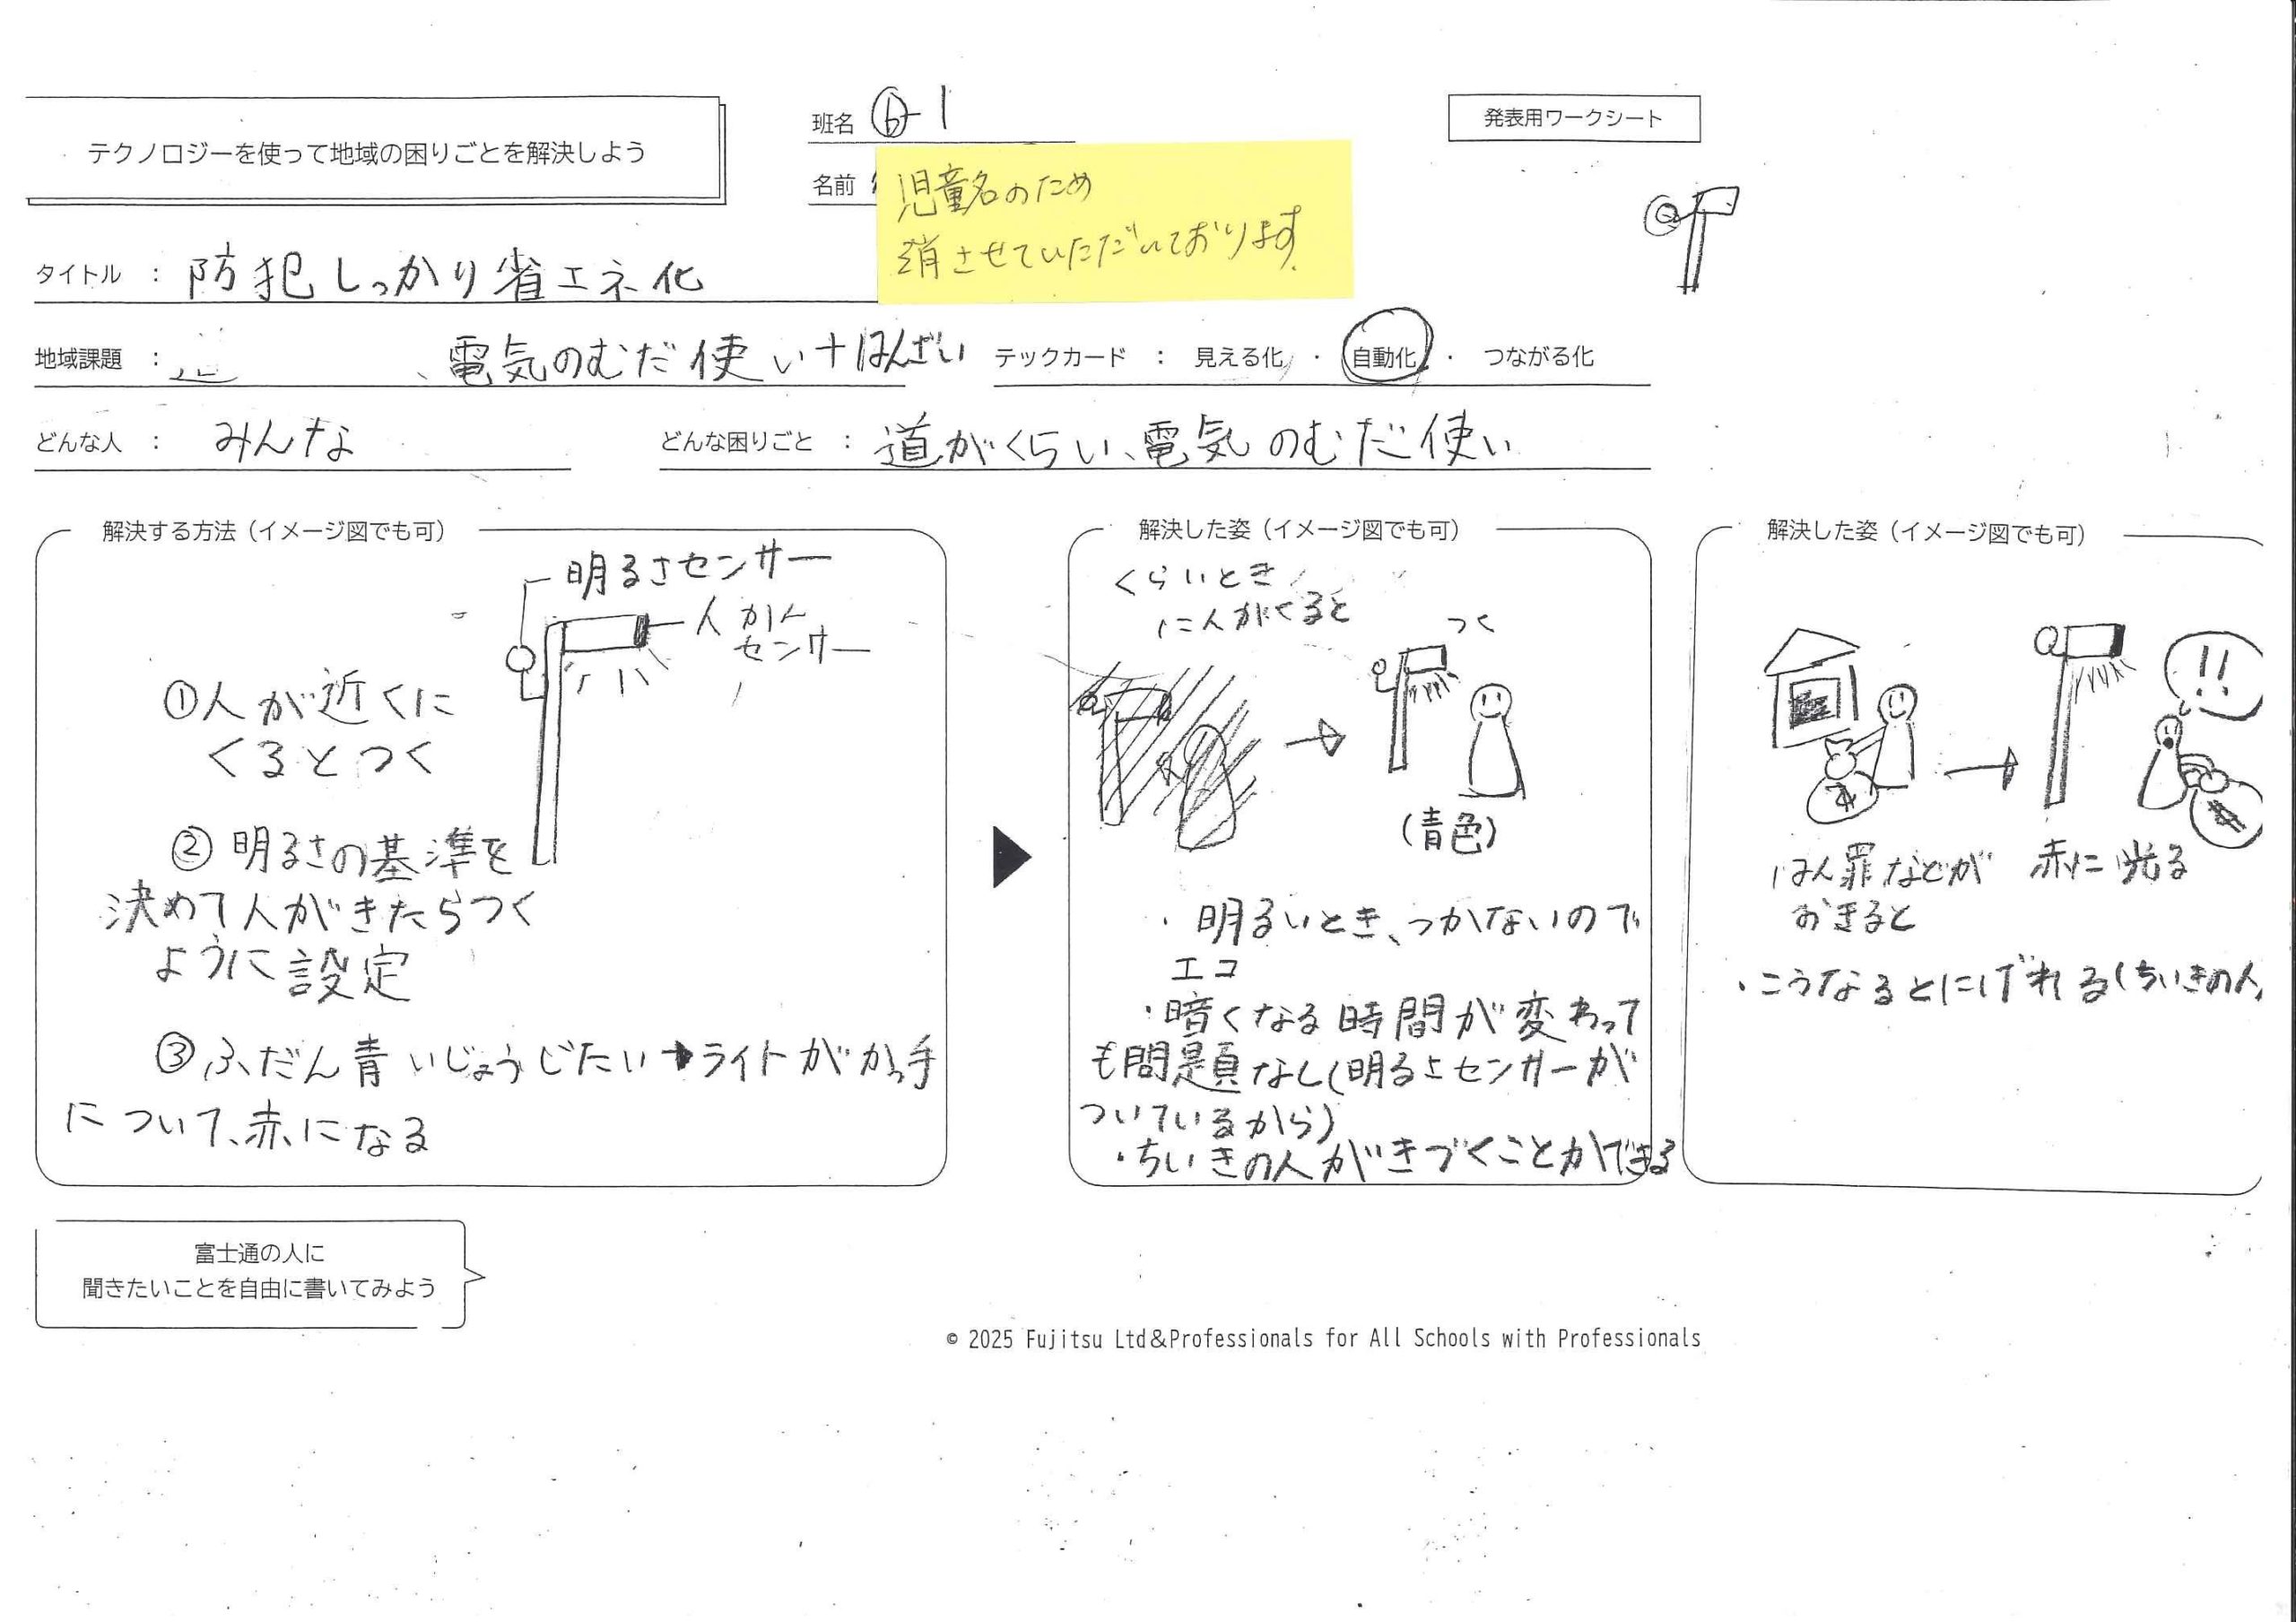 テクノロジーを使って地域の困りごとを解決しよう
班名 ⓑ-1
発表用ワークシート
名前
児童名のため
消させていただいております
タイトル : 防犯しっかり省エネ化
地域課題 : 、電気のむだ使い+はんざい
テックカード : 見える化 ・ 自動化 ・ つながる化
どんな人 : みんな
どんな困りごと : 道がくらい、電気のむだ使い
解決する方法(イメージ図でも可)
明るさセンサー
人かん
センサー
①人が近くに
くるとつく
②明るさの基準を
決めて人がきたらつく
ように設定
③ふだん青いじょうじたい→ライトがかっ手
について、赤になる
解決した姿(イメージ図でも可)
くらいとき
に人がくると
つく
(青色)
・明るいとき、つかないので
エコ
・暗くなる時間が変わって
も問題なし(明るさセンサーが
ついているから)
・ちいきの人がきづくことができる
解決した姿(イメージ図でも可)
!!
はん罪などが
おきると
赤に光る
・こうなるとにげれる(ちいきの人
富士通の人に
聞きたいことを自由に書いてみよう
© 2025 Fujitsu Ltd&Professionals for All Schools with Professionals